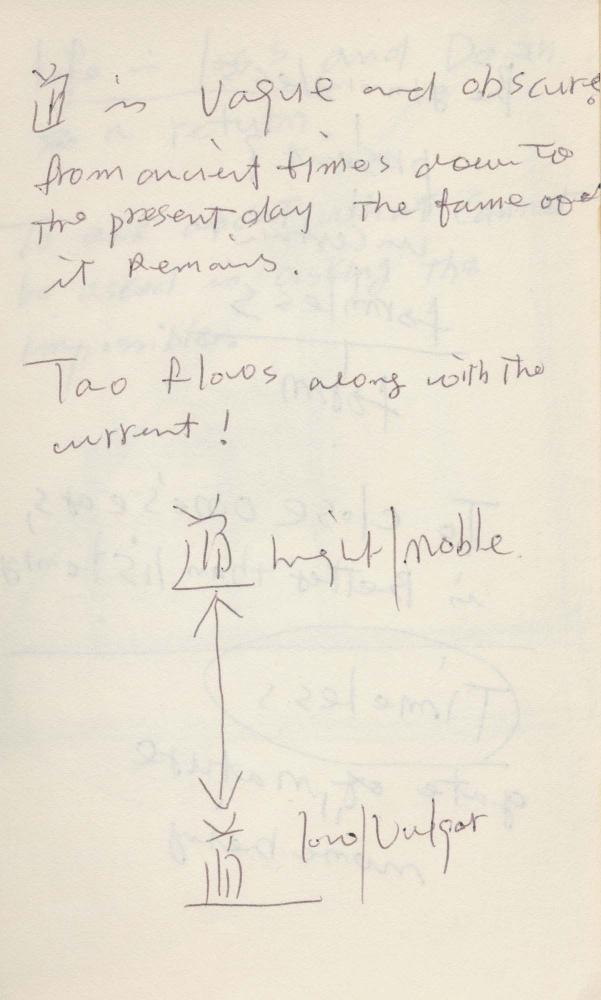 道 is Vague and obscure.
from ancient times down to
the present day The fame of
it Remains.
Tao flows along with the
current!
道 hight/noble.
道 low/Vulgar